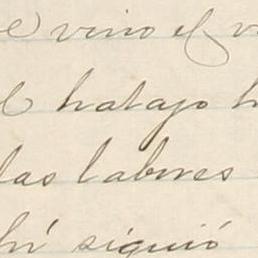 e vino el v
el hatajo h
las labores
hí siguió